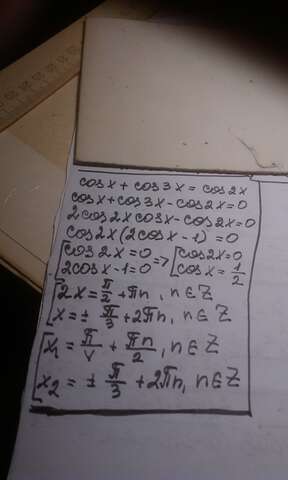 cos x + cos 3x = cos 2x
cos x + cos 3x - cos 2x = 0
2cos 2x cos x - cos 2x = 0
cos 2x (2cos x - 1) = 0
[cos 2x = 0 => [cos 2x = 0
2cos x - 1 = 0 cos x = 1/2
[2x = π/2 + πn, n ∈ Z
x = ± π/3 + 2πn, n ∈ Z
[x₁ = π/4 + πn/2, n ∈ Z
x₂ = ± π/3 + 2πn, n ∈ Z